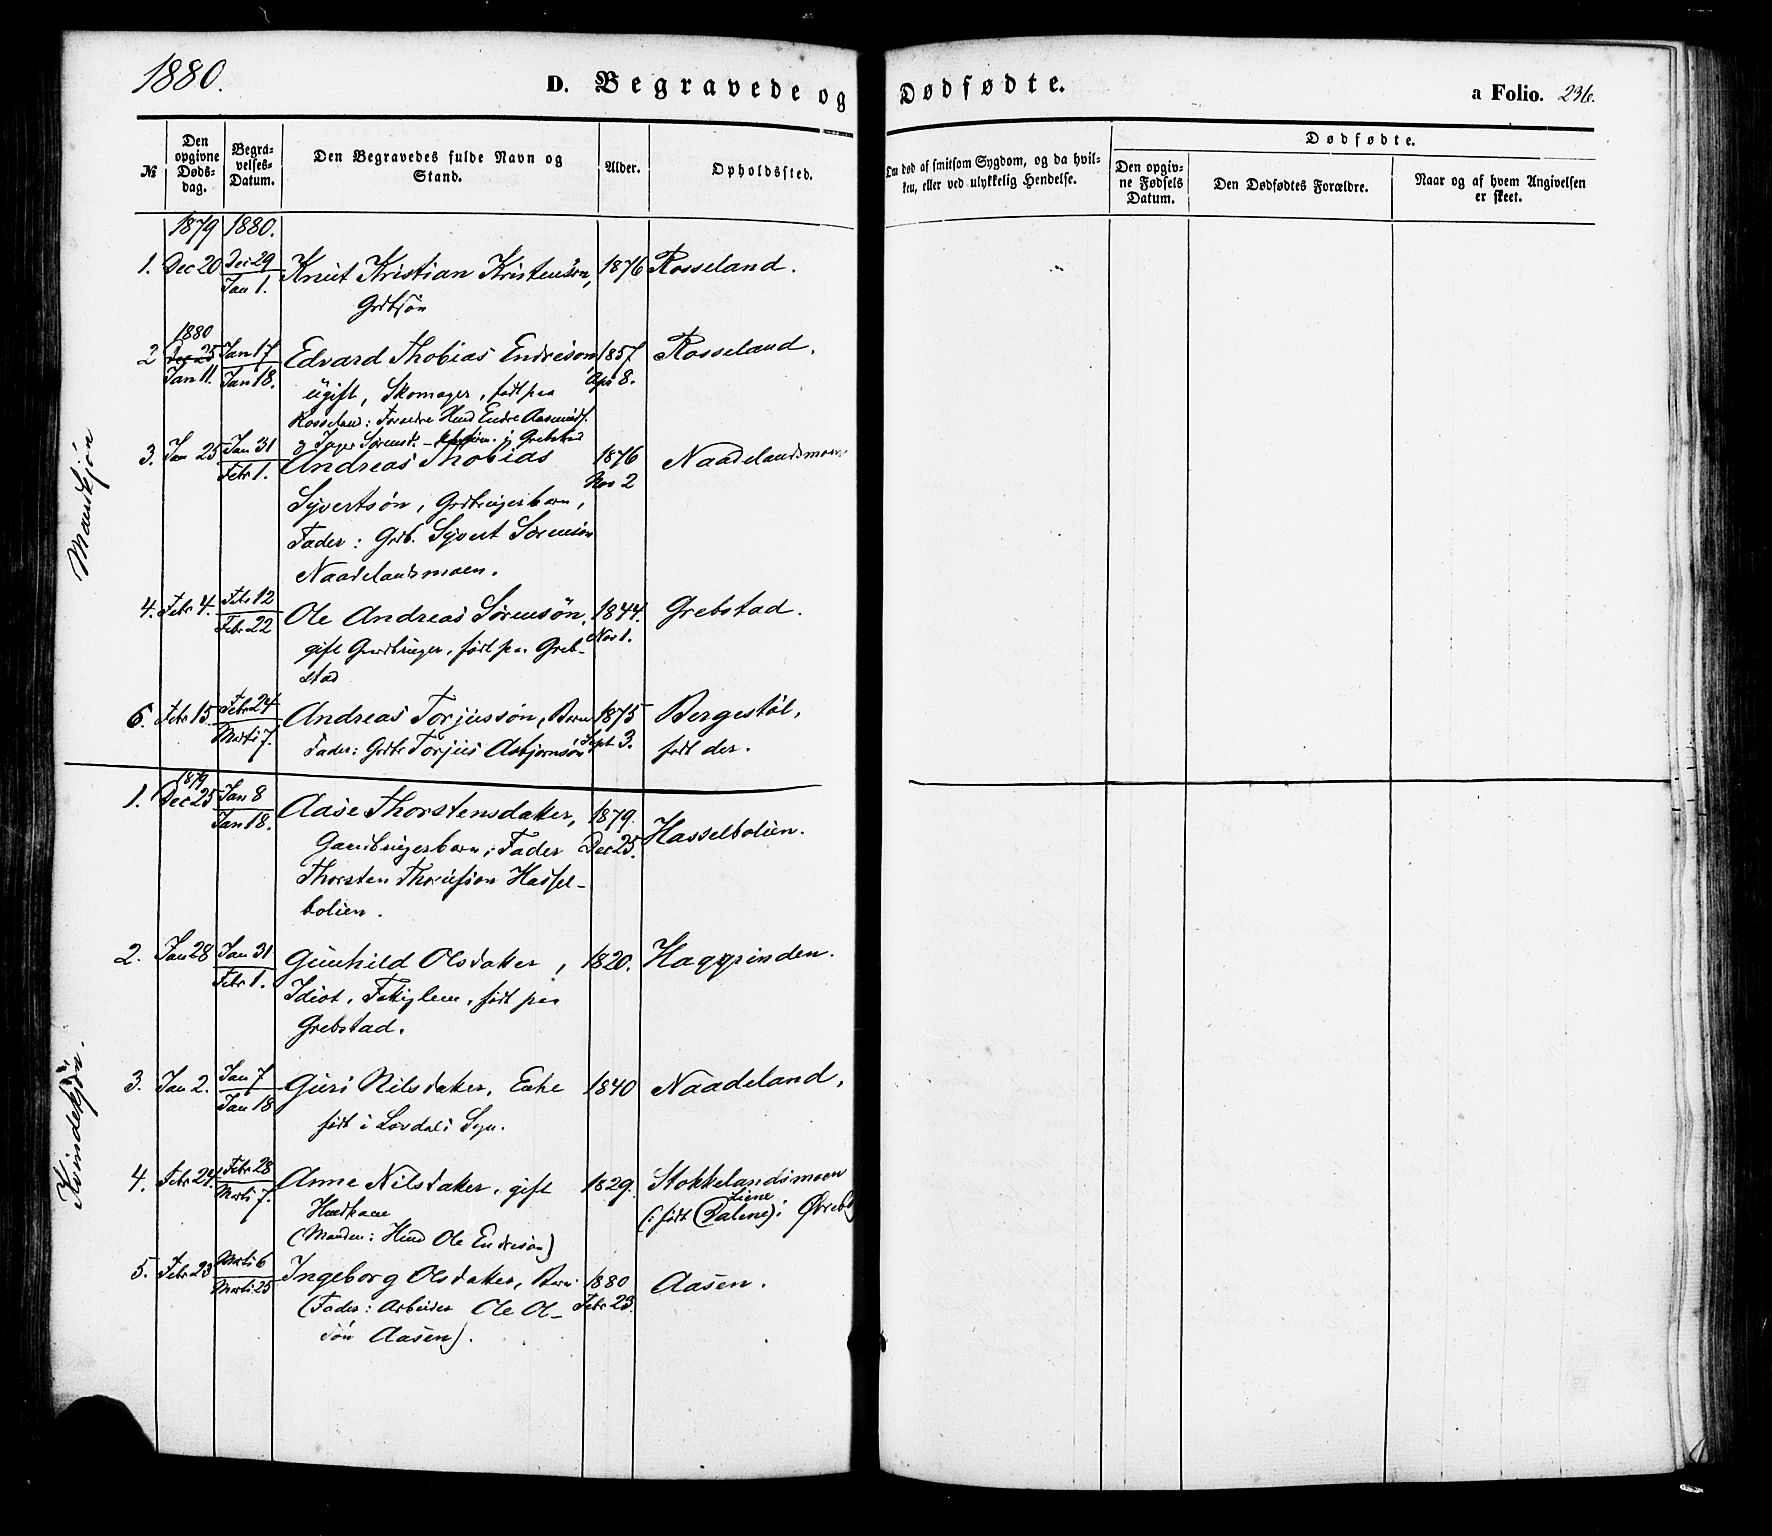 1880.
D. Begravede og Dødfødte.
a Folio. 236.
№
Den opgivne Dødsdag.
Begravelses-Datum.
Den Begravedes fulde Navn og Stand.
Alder.
Opholdssted.
Om død af smitsom Sygdom, og da hvilken, eller ved ulykkelig Hendelse.
Dødfødte.
Den opgivne Fødsels Datum.
Den Dødfødtes Forældre.
Naar og af hvem Angivelsen er skeet.
1879 1880.
Mandkjøn
1. Dec 20 Dec 29 Knut Kristian Kristensøn, 1876 Rosseland.
Jan 1. Grdbsøn
1880
2 Dec 25 Jan 17 Edvard Thobias Endresøn, 1857 Rosseland.
Jan 11. Jan 18. Ugift, Skomager, født paa Apr 8.
Rosseland: Forældre Hmd Endre Aasmunds.
og Inger Sørensd. Grebstad
3. Jan 25 Jan 31 Andreas Thobias 1876 Naadelandsmoen
Febr 1. Nov 2
Syvertsøn, Grdbrugerbarn,
Fader: Grdb. Syvert Sørensøn
Naadelandsmoen.
4. Febr 4. Febr 12 Ole Andreas Sørensøn, 1844. Grebstad.
Febr 22 gift Gardbruger, født paa Greb- Nov 1.
stad
5. Febr 15. Febr 24 Andreas Torjussøn, Barn 1875 Bergestøl,
Marts 7. Fader: Grdbr Torjus Asbjørnsøn Sept 3. født der.
Kvindekjøn.
1879
1. Dec 25 Jan 8 Aase Thorstensdatter, 1879. Hasselbolien.
Jan 18. Gardbrugerbarn, Fader Dec 25.
Thorsten Hassel-
bolien.
2. Jan 28 Jan 31 Gunhild Olsdatter, 1820. Haggrinden.
Febr 1. Idiot, Fattiglem, født paa
Grebstad.
3. Jan 2. Jan 7 Guri Nilsdatter, Enke 1840 Naadeland,
Jan 18 født i Løvdals Sogn.
4. Febr 24. Febr 28 Anne Nilsdatter, gift 1829. Stokkelandsmoen
Marts 7. Huskone (: født Dalene): Øvrebø
Liene
(Manden: Hmd Ole Endresøn)
5. Febr 23 Marts 6 Ingeborg Olsdatter, Barn 1880 Aasen.
Marts 25 (Fader: Arbeider Ole Ol- Febr 23.
søn Aasen).